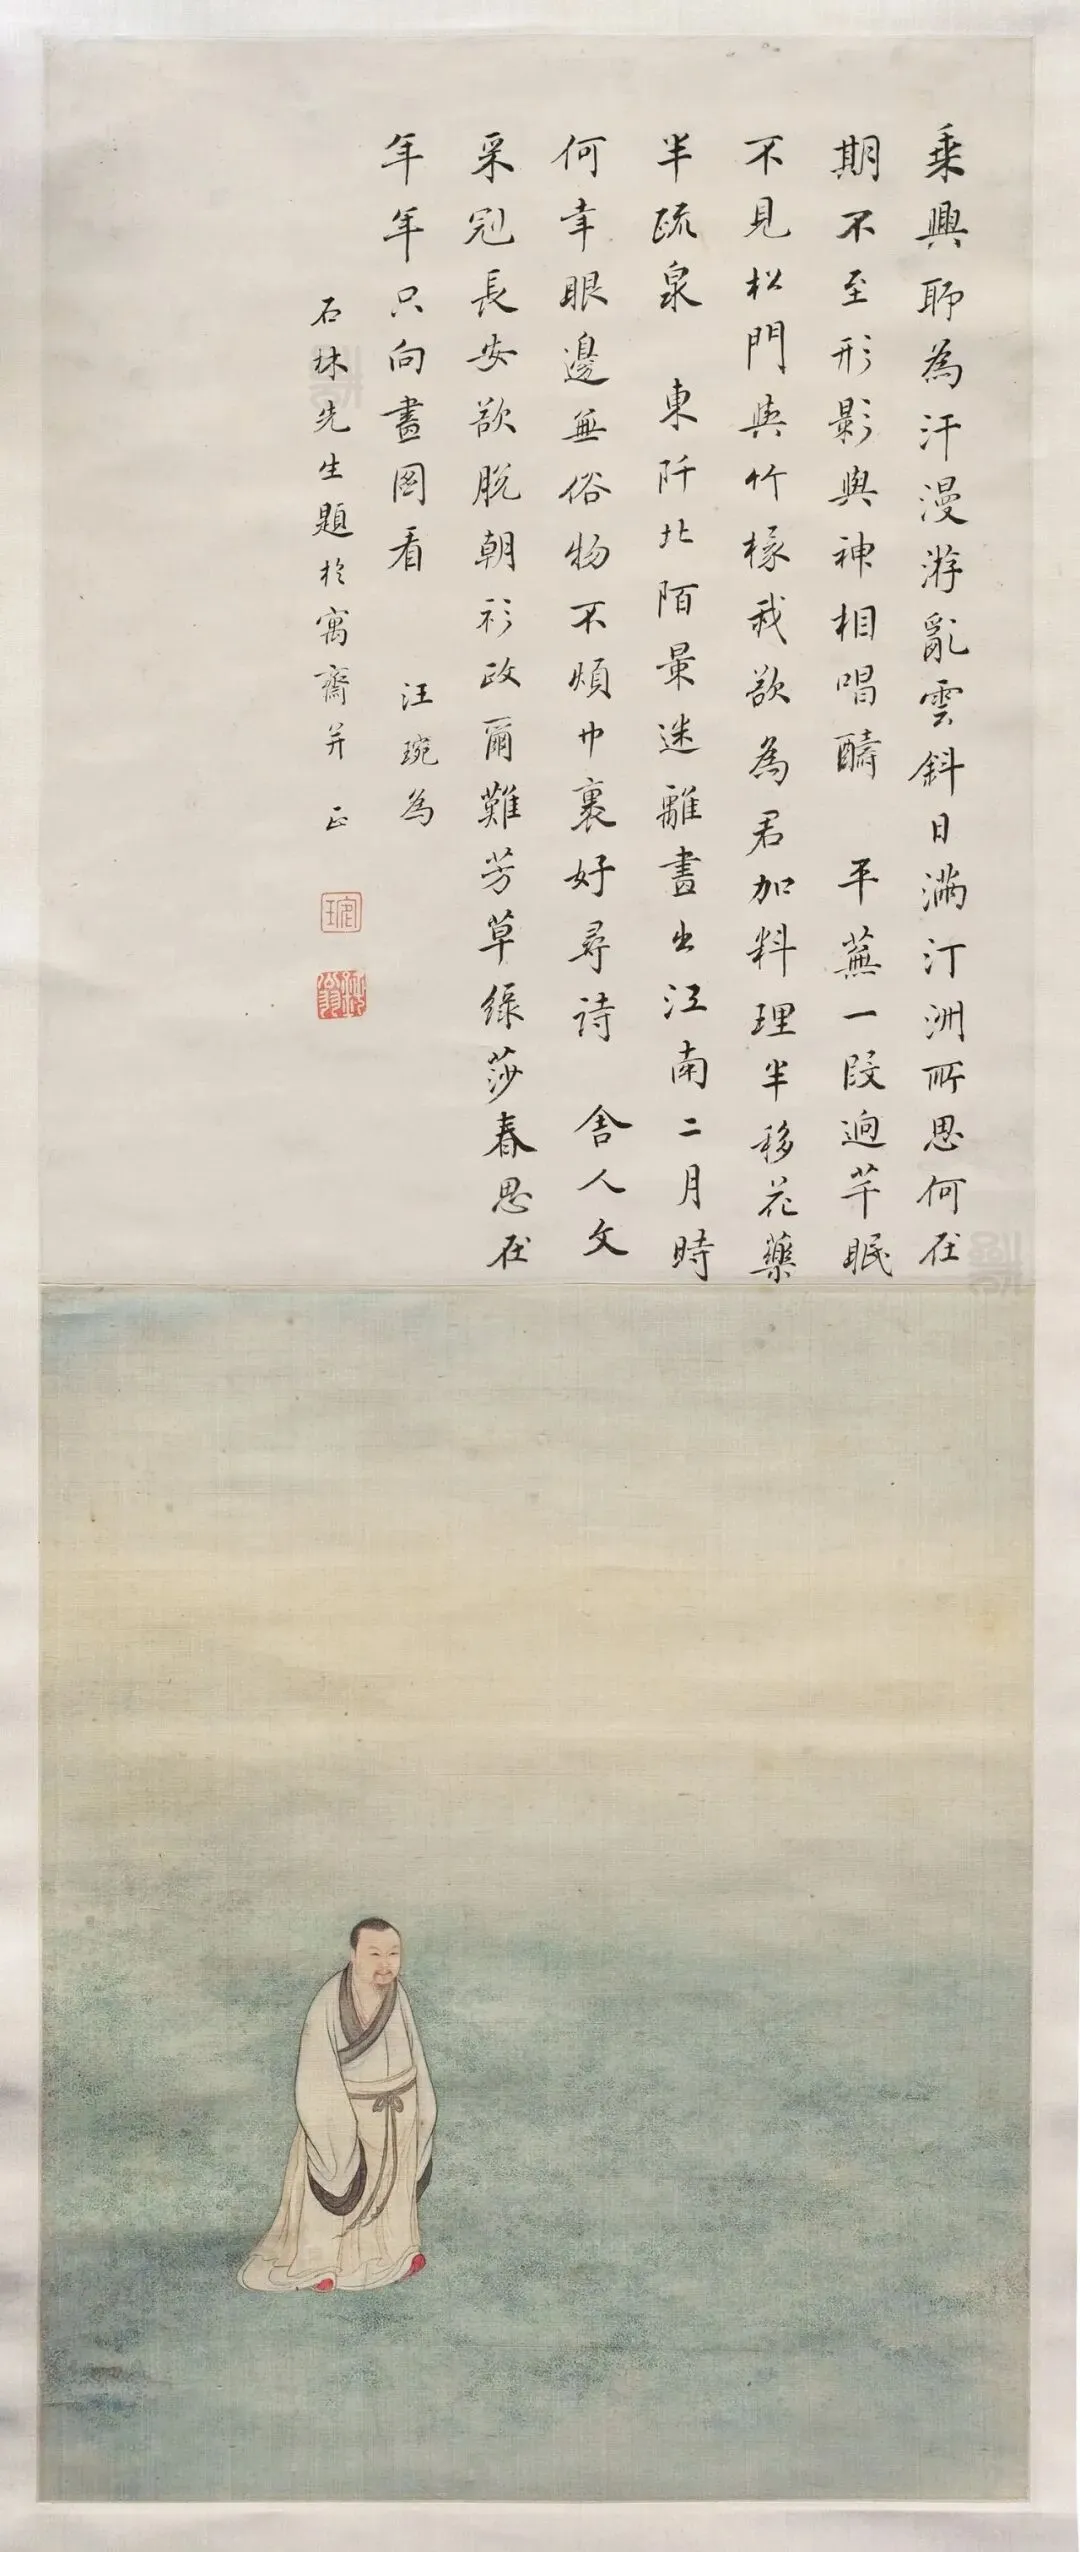 乘興聊為汗漫游亂雲斜日滿汀洲所思何在
期不至形影與神相唱酬 平蕪一段迥芊眠
不見松門與竹椽我欲為君加料理半移花藥
半疏泉 東阡北陌景迷離畫出江南二月時
何幸眼邊無俗物不煩巾裏好尋詩 舍人文
采冠長安欲脫朝衫政爾難芳草綠莎春思在
年年只向畫圖看 汪琬為
石林先生題於寓齋并 正